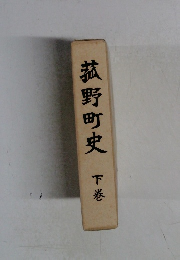 菰野町史
下巻